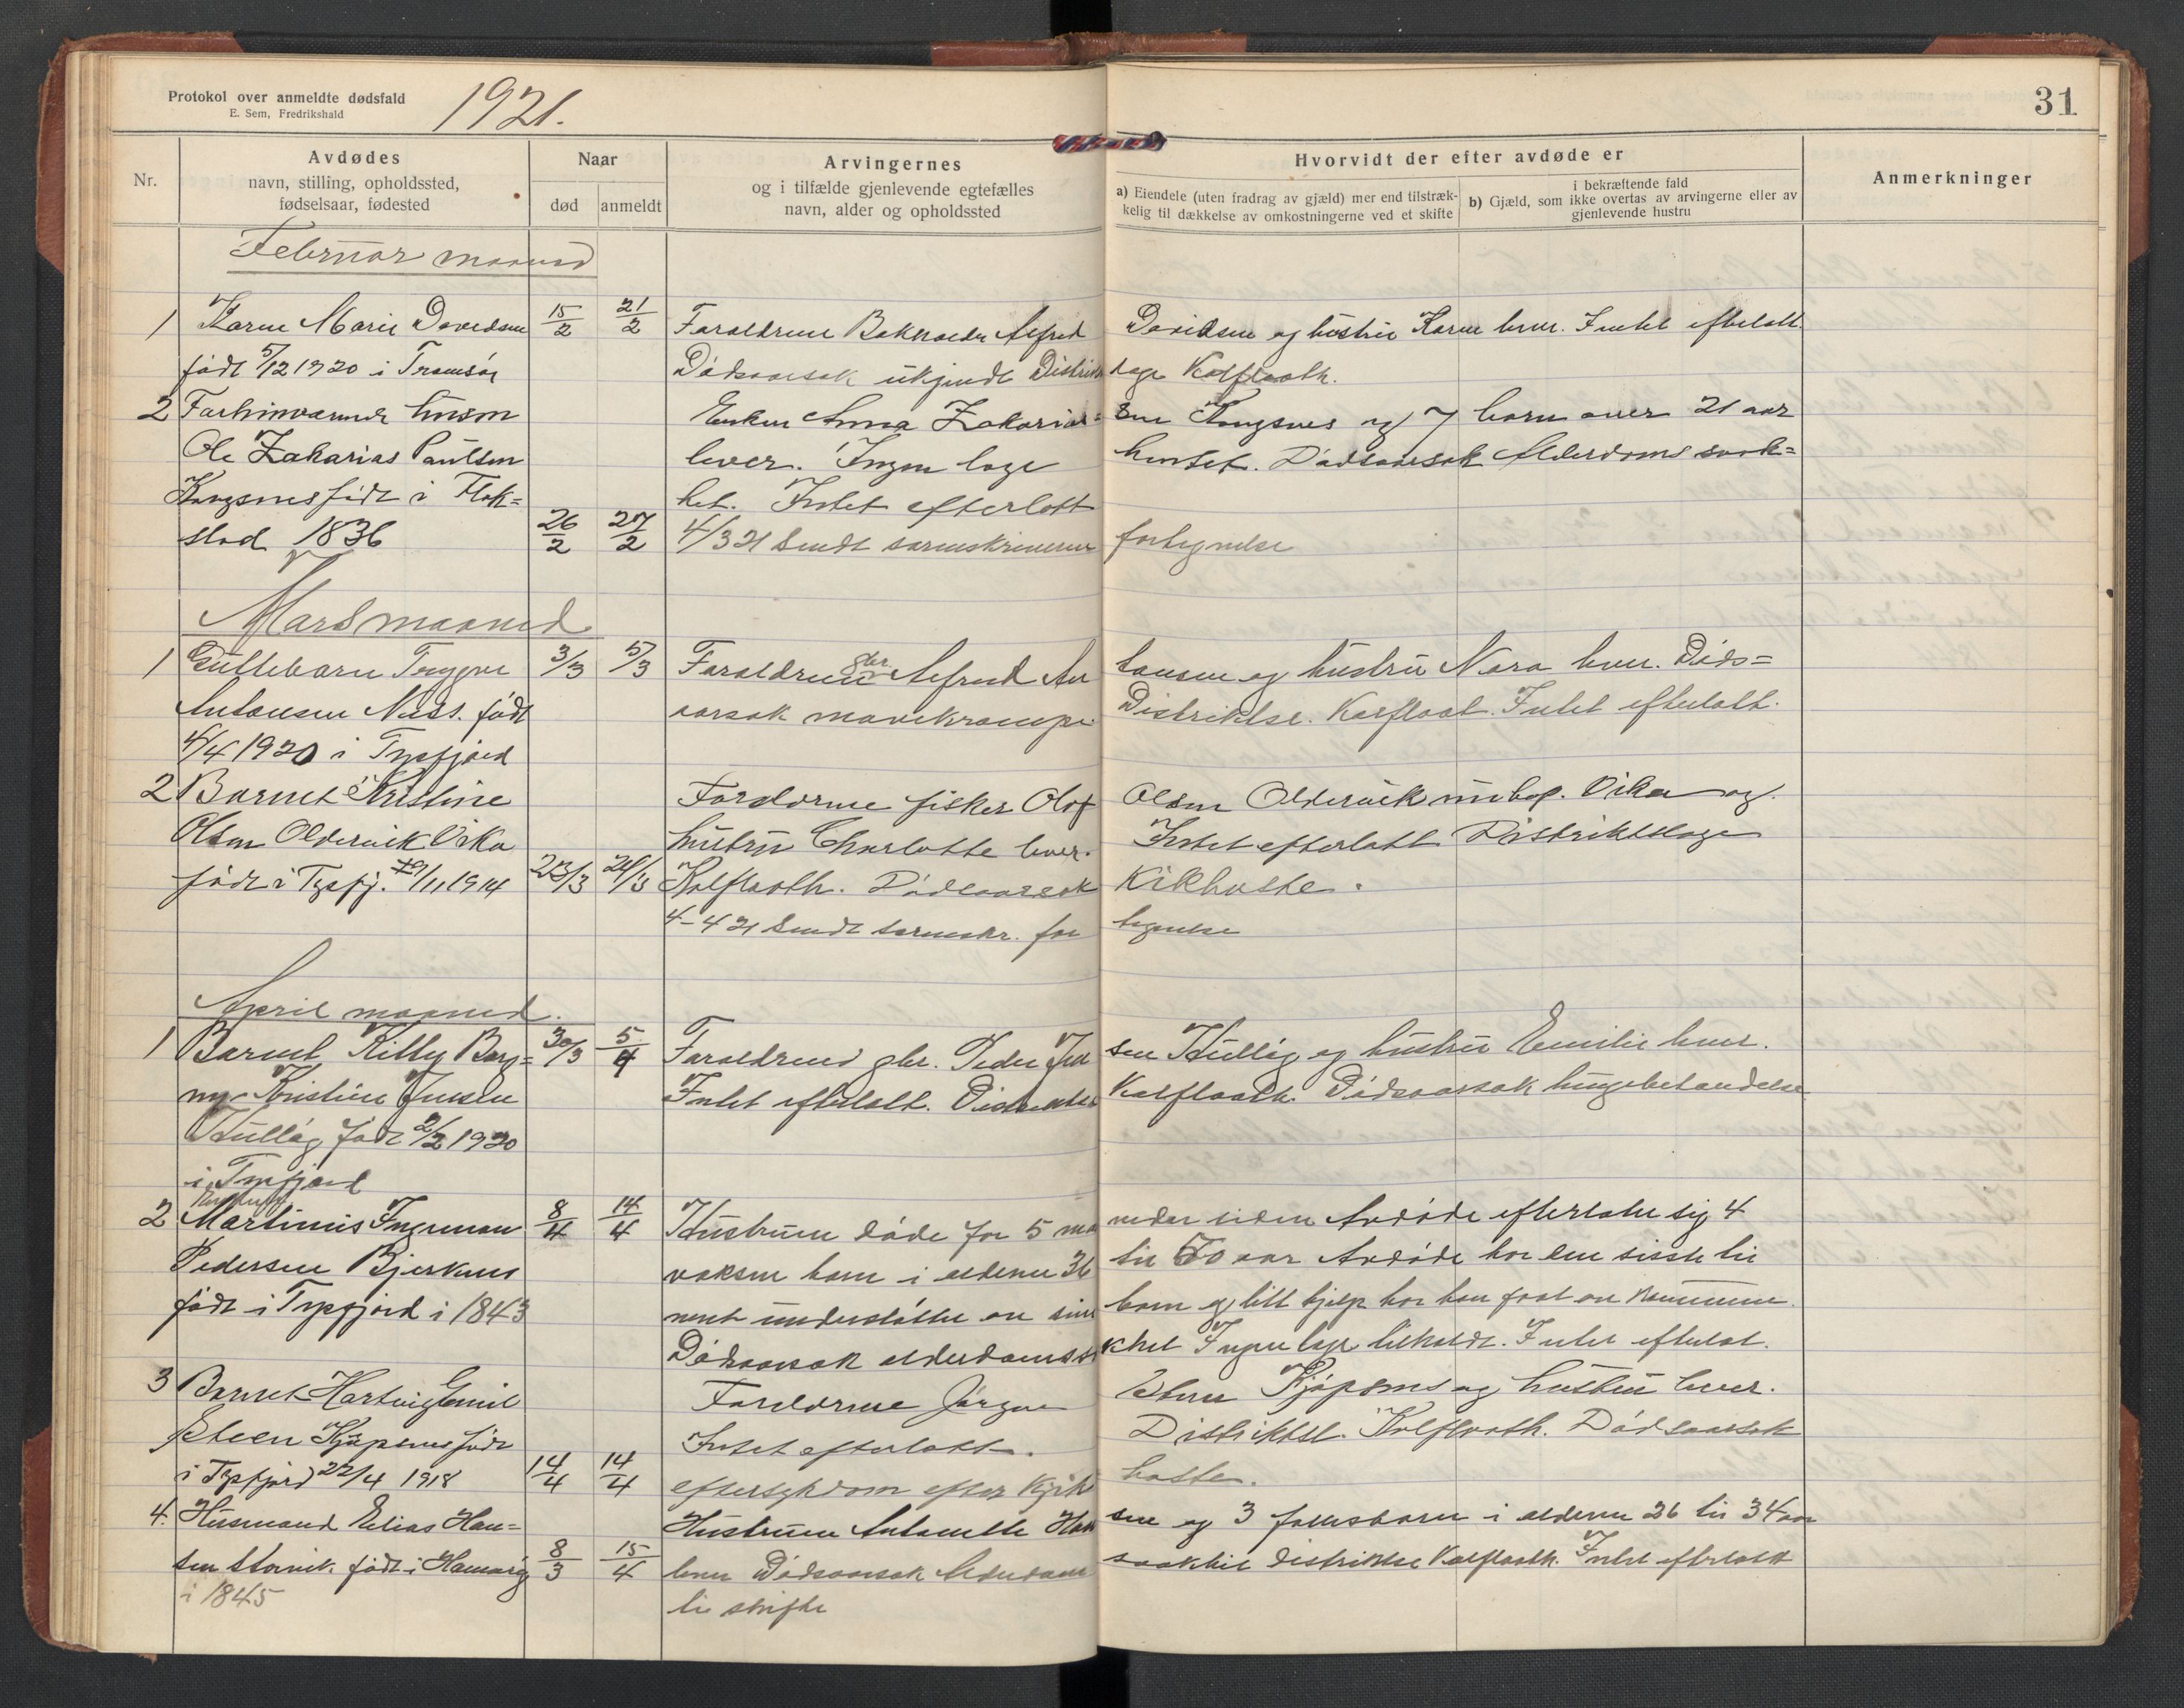 Protokol over anmeldte dødsfald
E. Sem, Fredrikshald
1921.
31
Nr.
Avdødes
navn, stilling, opholdssted,
fødselsaar, fødested
Naar
død
anmeldt
Arvingernes
og i tilfælde gjenlevende egtefælles
navn, alder og opholdssted
Hvorvidt der efter avdøde er
a) Eiendele (uten fradrag av gjæld) mer end tilstræk-
kelig til dækkelse av omkostningerne ved et skifte
i bekræftende fald
b) Gjæld, som ikke overtas av arvingerne eller av
gjenlevende hustru
Anmerkninger
Februar maaned
1 Karen Marie Davidsen 15/2 21/2 Foraldrene Alfred Davidsen og hustru Karen lever. Intet efterlatt.
født 5/12 1920 i Tromsø Dødsaarsak ukjendt Distriktslage Kolflaath.
2 Enken Anna Zakarias= sen Kongsnes og 7 barn over 21 aar
Ole Zakarias Paulsen lever. Ingen lage hentet. Dødsaarsak Alderdoms svak=
Kongsnes født i Flak= het. Intet efterlatt
stad 1836 26/2 27/2 4/3 21 Sendt sorenskriveren fortegnelse
Mars maaned
1 Guttebarn Trygve 3/3 5/3 Foraldrene gbr. Alfred An tonsen og hustru Nora lever. Døds=
Antonsen Ness. født aarsak mavekrampe. Distriktsl. Kolflaat. Intet efterlatt.
4/4 1920 i Tysfjord
2 Barnet Kristine Foreldrene fisker Olof Olsen Oldervik Vika og
Olsen Oldervik Vika hustru Charlotte lever. Intet efterlatt Distriktslage
født i Tysfj. 1914 23/3 26/3 Kolflaath. Dødsaarsak Kikhoste.
4-4 21 Sendt sorenskr. for tegnelse
April maaned.
1 Barnet Killy Borg= 30/3 5/4 Foraldrene gbr. Peder Jen sen Hulløy og hustru Emilie lever.
ny Kristine Jensen Intet efterlatt. Kolflaath. Dødsaarsak lungebetændelse
Hulløy født 2/2 1920
i Tysfjord
2 Martinus Ingeman 8/4 14/4 Hustruen døde for 5 maa neder siden Avdøde efterlater sig 4
Pedersen Bjerknes voksne barn i alderen 36 til 50 aar Avdøde har den sisste tid
født i Tysfjord i 1843 ment understøttet av sine barn og litt hjelp har han faat av kommunen.
Dødsaarsak alderdomssv khet Ingen lage tilkaldt. Intet efterlat.
3 Barnet Hartvig Emil Foreldrene Jørgen Steen Kjøpsnes og hustru lever.
Steen Kjøpsnes født Intet efterlatt. Distriktsl. Kolflaath. Dødsaarsak
i Tysfjord 22/4 1918 14/4 14/4 eftersykdom efter Kjik hoste.
4. Husmand Elias Han= Hustruen Antonette Han sen og 3 barn i alderen 26 til 34 aar
sen Storvik. født i Hamarøy 8/3 15/4 lever Dødsaarsak Alderdom svakhet distriktsl. Kolflaath. Intet efterlatt
i 1845 til skifte